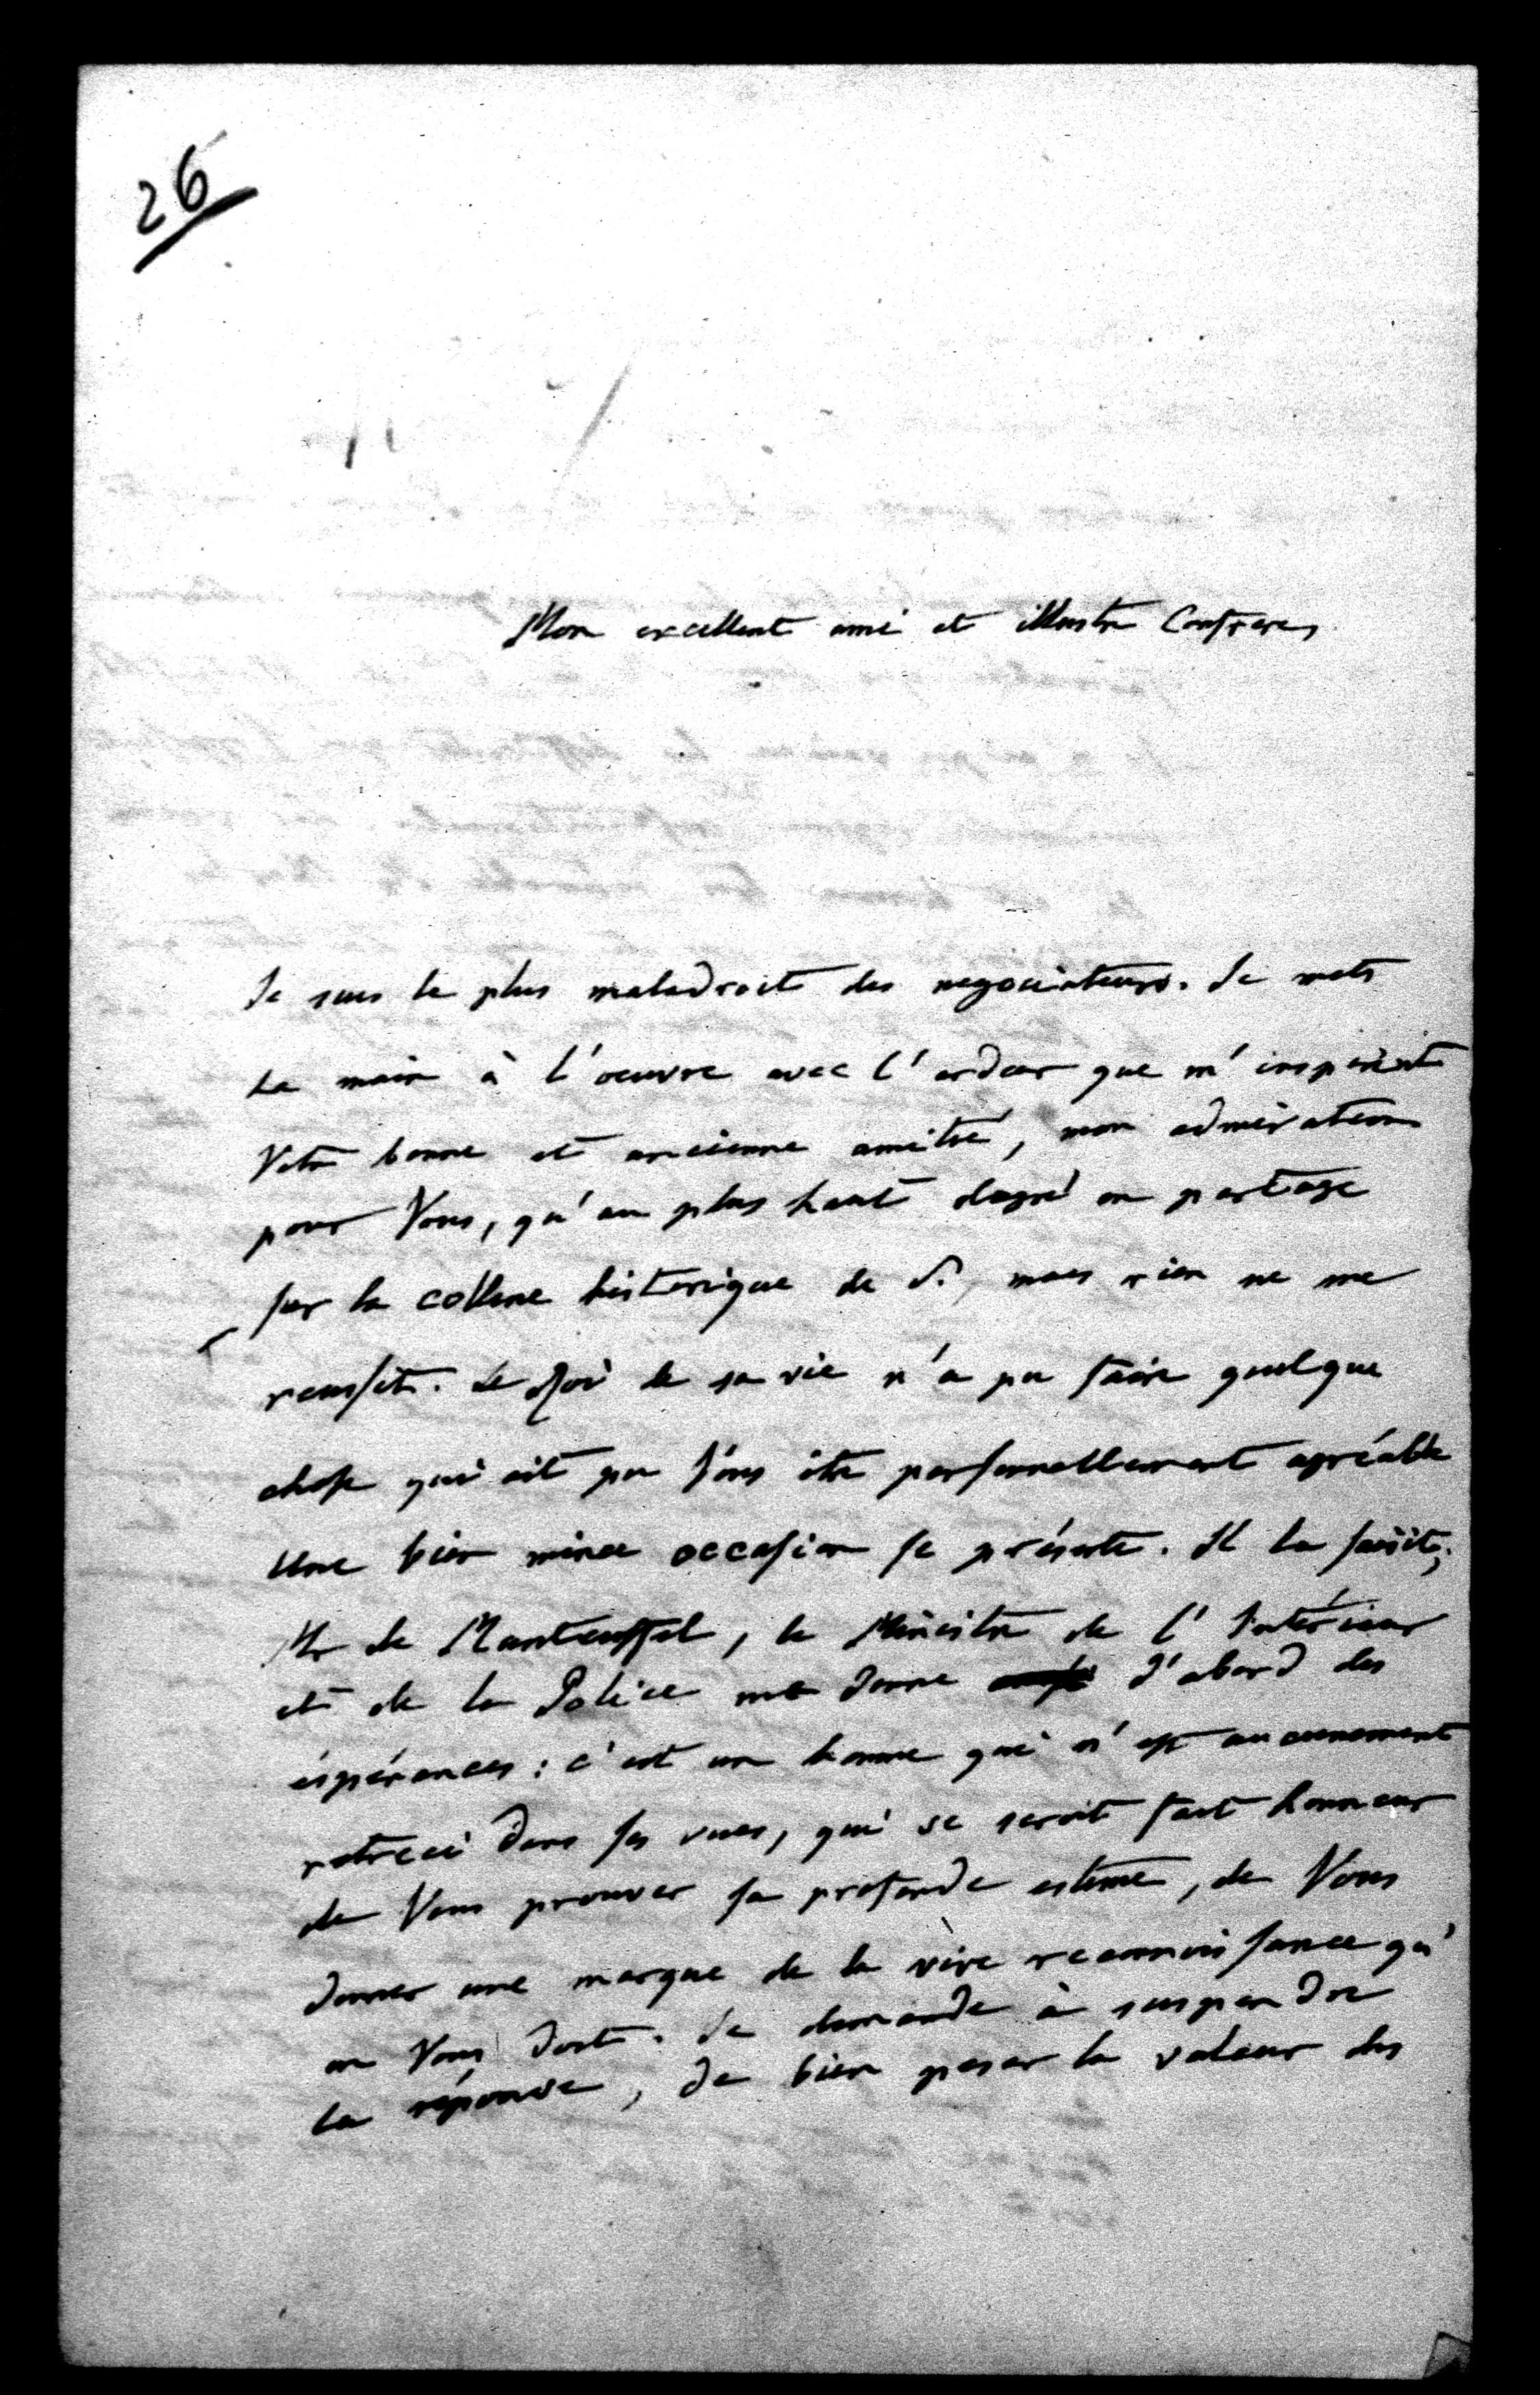 26
Mon excellent ami et illustre Confrere,
Je suis le plus maladroit des negociateurs. Je mets
la main à l'oeuvre avec l'ardeur que m'inspirent
Votre bonne et ancienne amitié, mon admiration
pour Vous, qu'au plus haut degré on partage
sur la colline historique de S. mais rien ne me
reussit. Le Roi de sa vie n'a pu faire quelque
chose qui ait pu Vous être personnellement agréable
Une bien mince occasion se présente. Il la saisit,
Mr de Manteuffel, le Ministre de l'Intérieur
et de la Police me donne d'abord des
éspérances: c'est un homme qui n'est aucunement
retreci dans ses vues, qui se seroit fait honneur
de Vous prouver sa profonde estime, de Vous
donner une marque de la vive reconnoissance qu'
on Vous doit. Je demande à suspendre
la réponse, de bien peser la valeur des